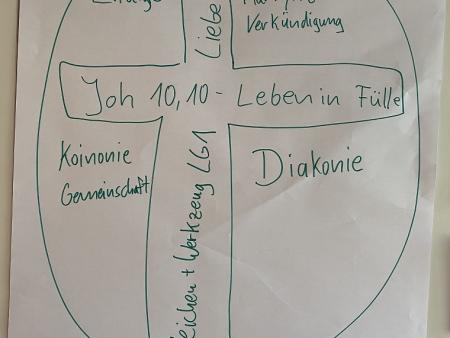 Liebe
Verkündigung
Joh 10,10 - Leben in Fülle
Koinonie
Gemeinschaft
Diakonie
Zeichen + Werkzeug LG1